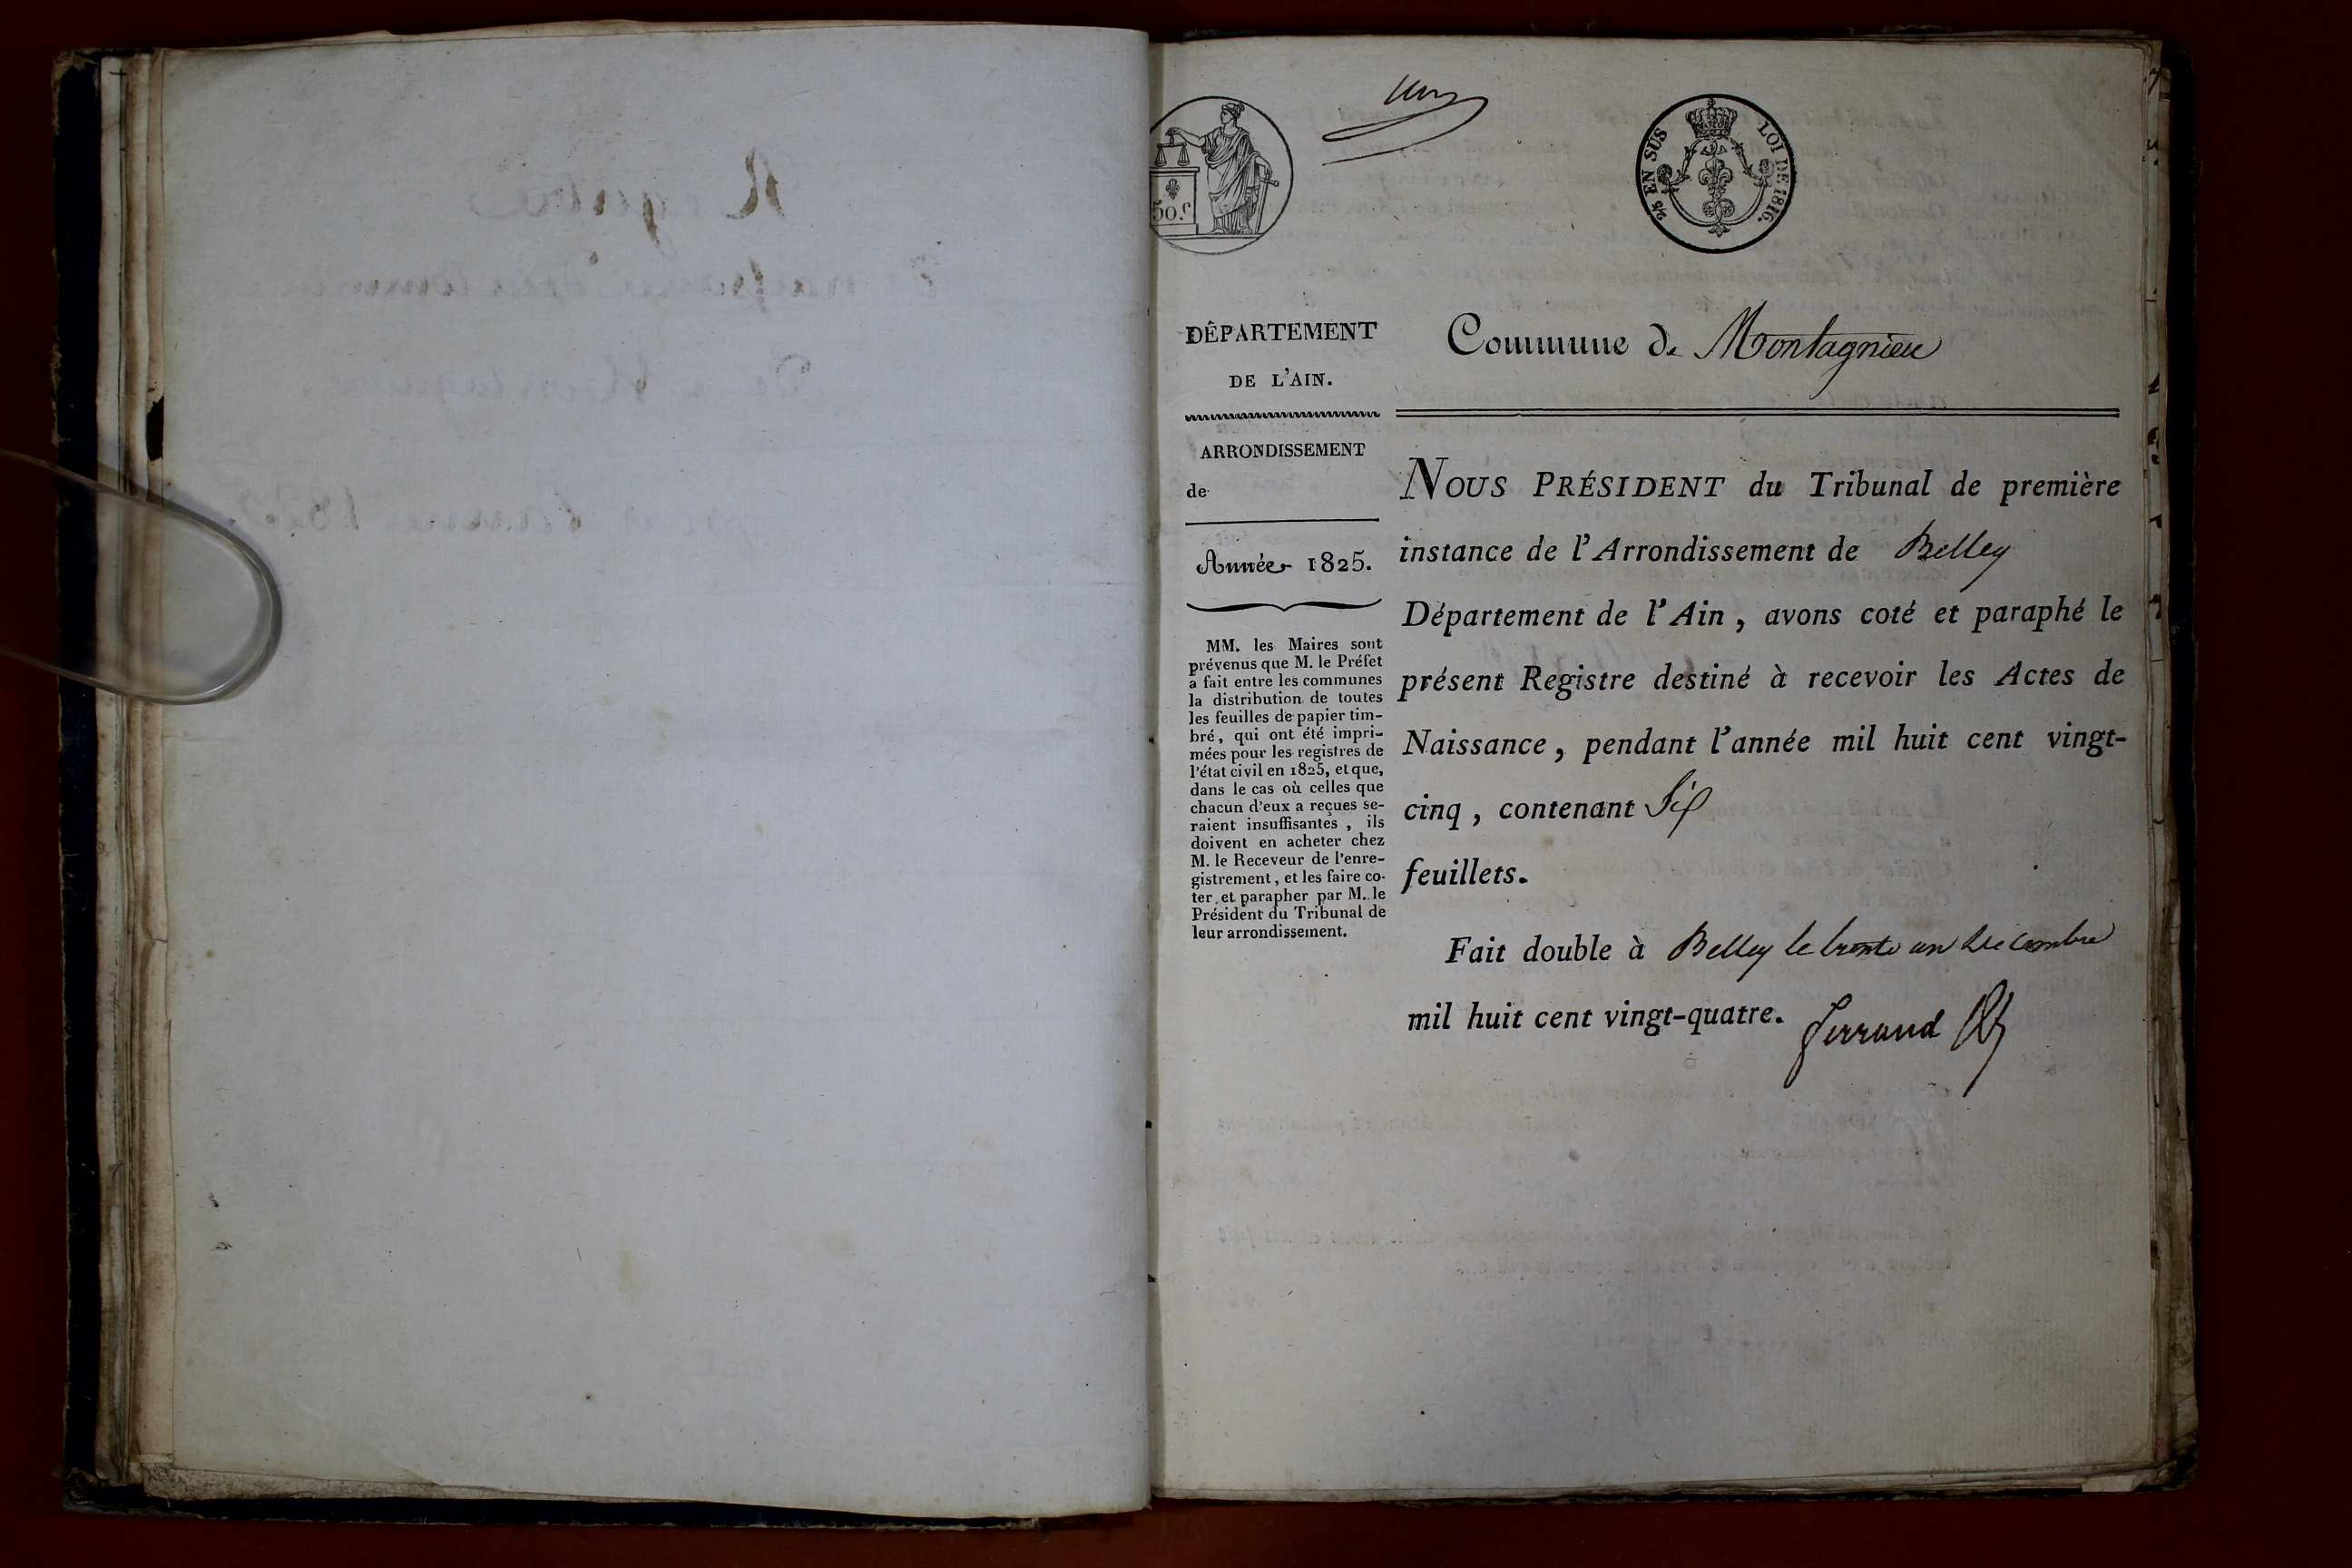 un
50.c
2/5 EN SUS
LOI DE 1816.
DÉPARTEMENT
DE L'AIN.
ARRONDISSEMENT
de
Année 1825.
MM. les Maires sont
prévenus que M. le Préfet
a fait entre les communes
la distribution de toutes
les feuilles de papier tim-
bré, qui ont été impri-
mées pour les registres de
l'état civil en 1825, et que,
dans le cas où celles que
chacun d'eux a reçues se-
raient insuffisantes, ils
doivent en acheter chez
M. le Receveur de l'enre-
gistrement, et les faire co-
ter et parapher par M. le
Président du Tribunal de
leur arrondissement.
Commune de Montagnieu
NOUS PRÉSIDENT du Tribunal de première
instance de l'Arrondissement de Belley
Département de l'Ain, avons coté et paraphé le
présent Registre destiné à recevoir les Actes de
Naissance, pendant l'année mil huit cent vingt-
cinq, contenant Six
feuillets.
Fait double à Belley le trente un Décembre
mil huit cent vingt-quatre.
Ferrand